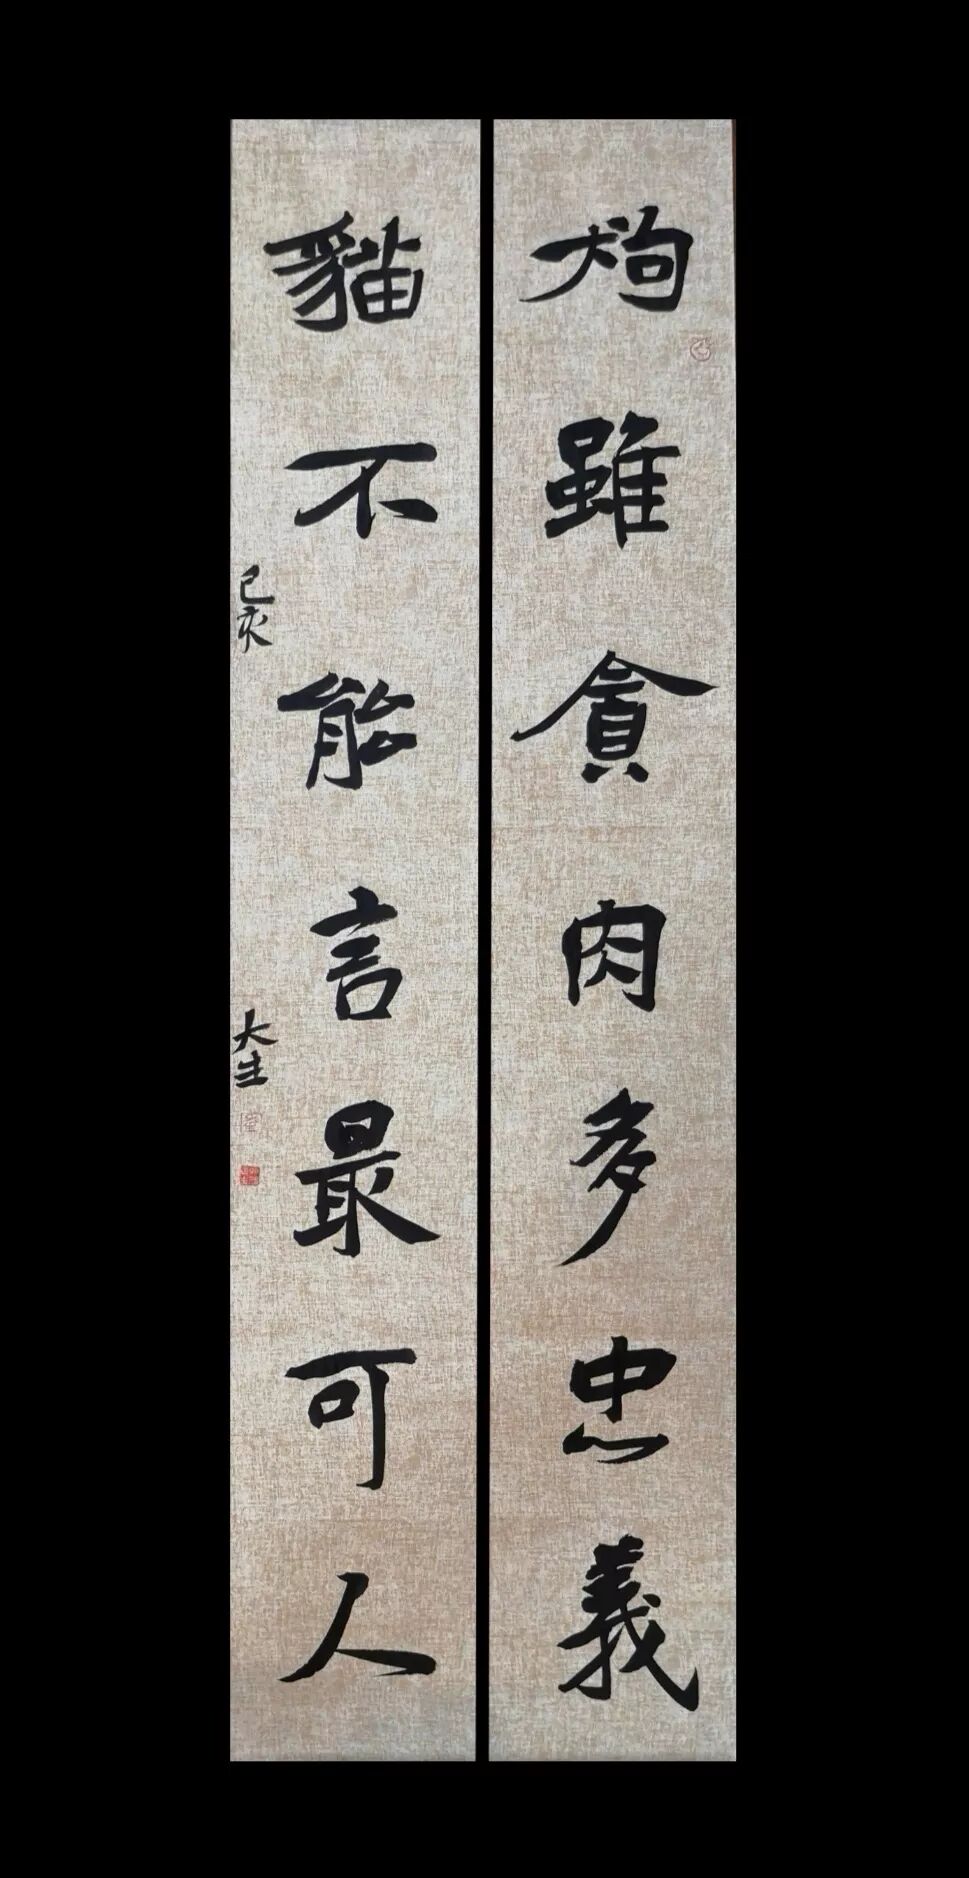 狗雖貪肉多忠義
貓不能言最可人
己亥
大生